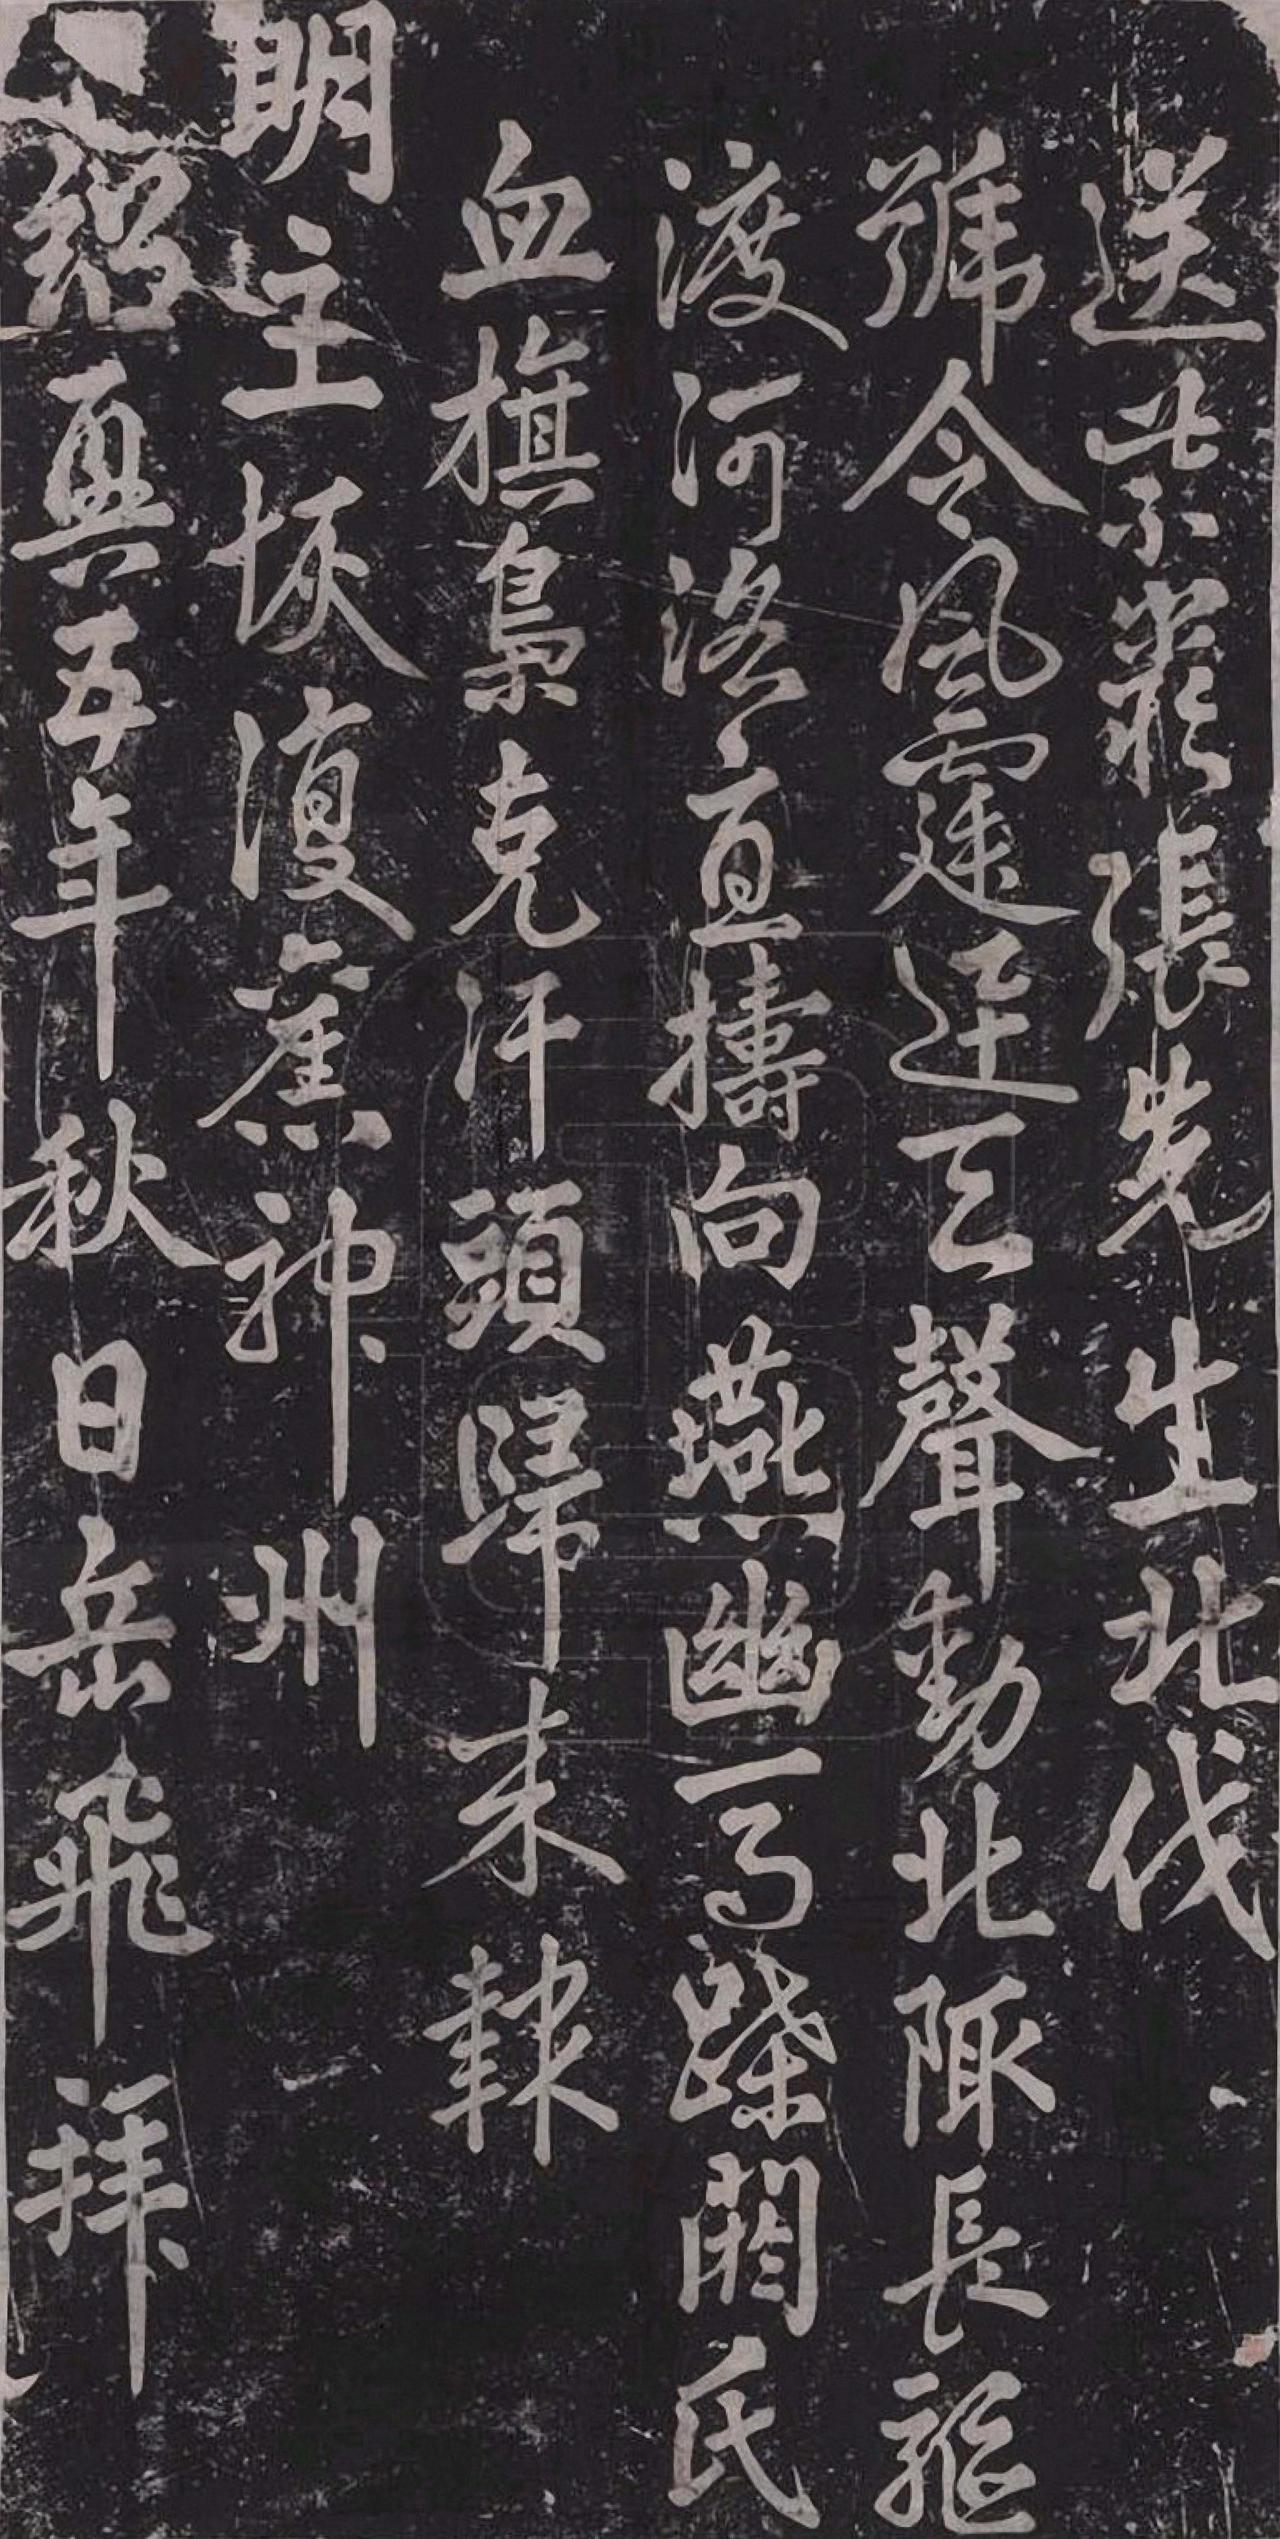 送紫巖張先生北伐
號令風霆迅天聲動北陬長驅
渡河洛直擣向燕幽馬蹀閼氏
血旗梟克汗頭歸来報
明主恢復舊神州
紹興五年秋日岳飛拜